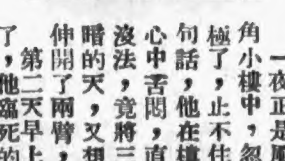 一夜正是
角小樓中,忽
極了,止不住
句話,他在
心中苦悶,直
沒法,竟將三
暗的天,又想
伸開了兩臂,
第二天早上
了,他臨死的